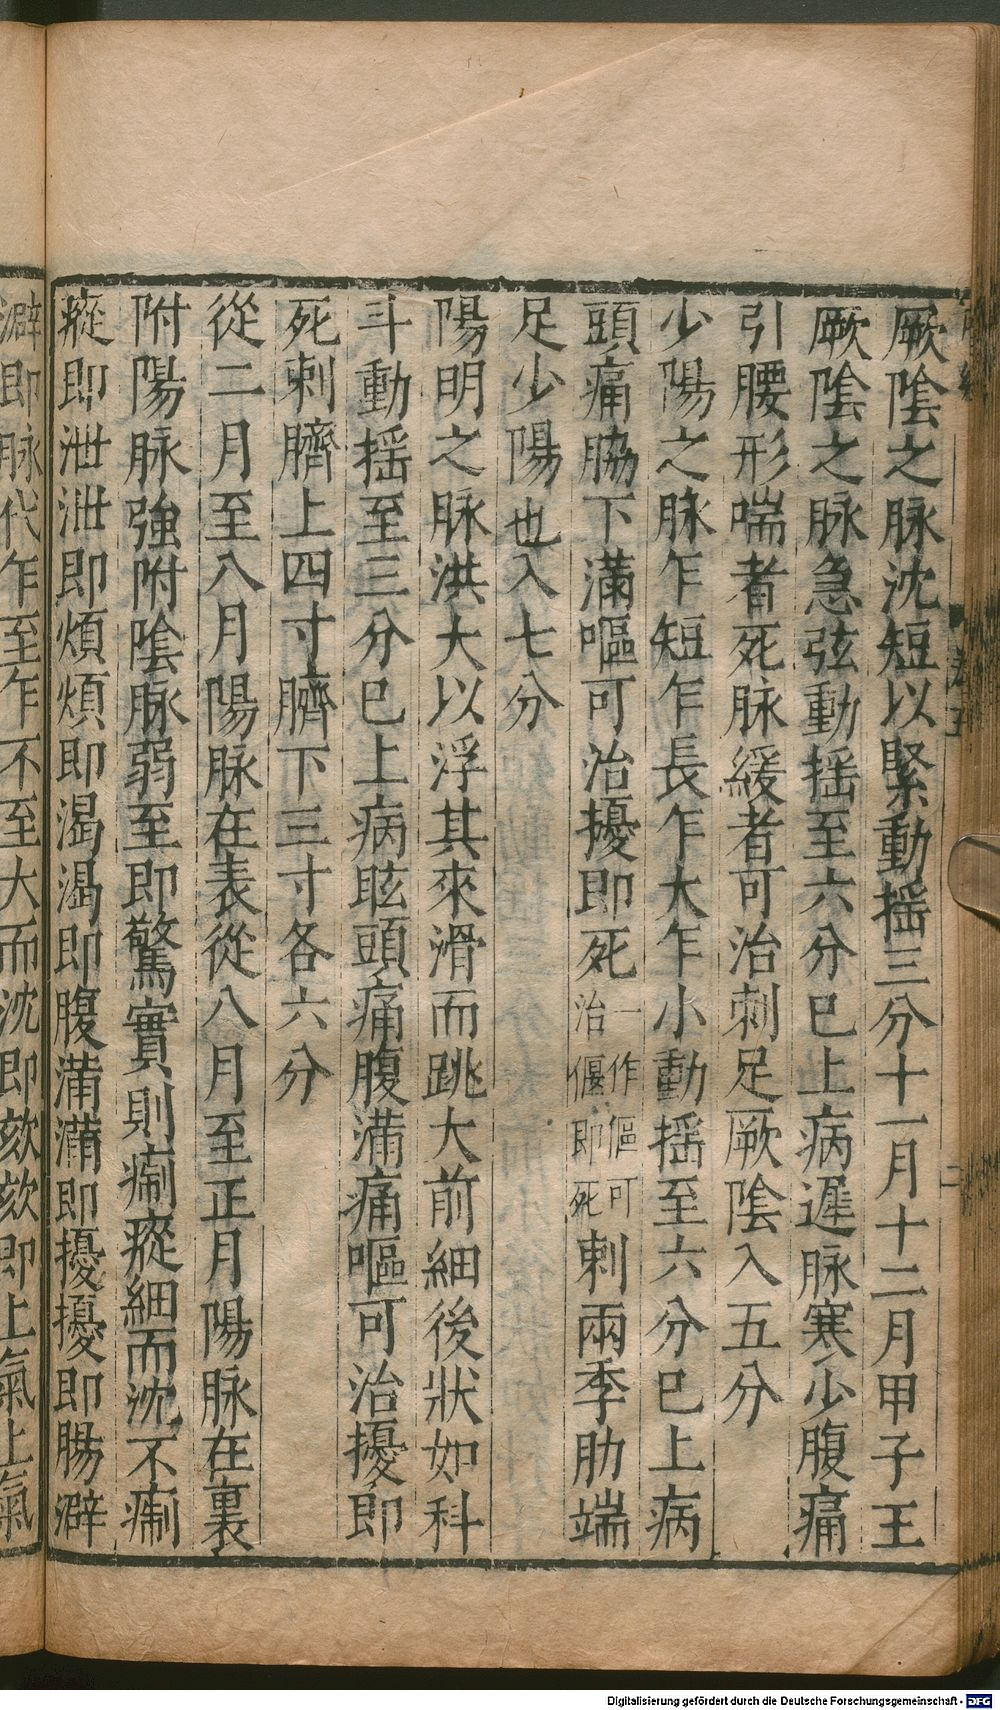 厥陰之脉沈短以緊動揺三分十一月十二月甲子王
厥陰之脉急弦動揺至六分巳上病遲脉寒少腹痛
引腰形喘者死脉緩者可治刺足厥陰入五分
少陽之脉乍短乍長乍大乍小動揺至六分巳上病
頭痛脇下滿嘔可治擾即死一作傴可治偃即死刺兩季肋端
足少陽也入七分
陽明之脉洪大以浮其來滑而跳大前細後狀如科
斗動揺至三分巳上病眩頭痛腹滿痛嘔可治擾即
死刺臍上四寸臍下三寸各六分
從二月至八月陽脉在表從八月至正月陽脉在裏
附陽脉強附陰脉弱至即驚實則瘈瘲細而沈不瘈
瘲即泄泄即煩煩即渴渴即腹滿滿即擾擾即腸澼
澼即脉代乍至乍不至大而沈即欬欬即上氣上氣
Digitalisierung gefördert durch die Deutsche Forschungsgemeinschaft - DFG